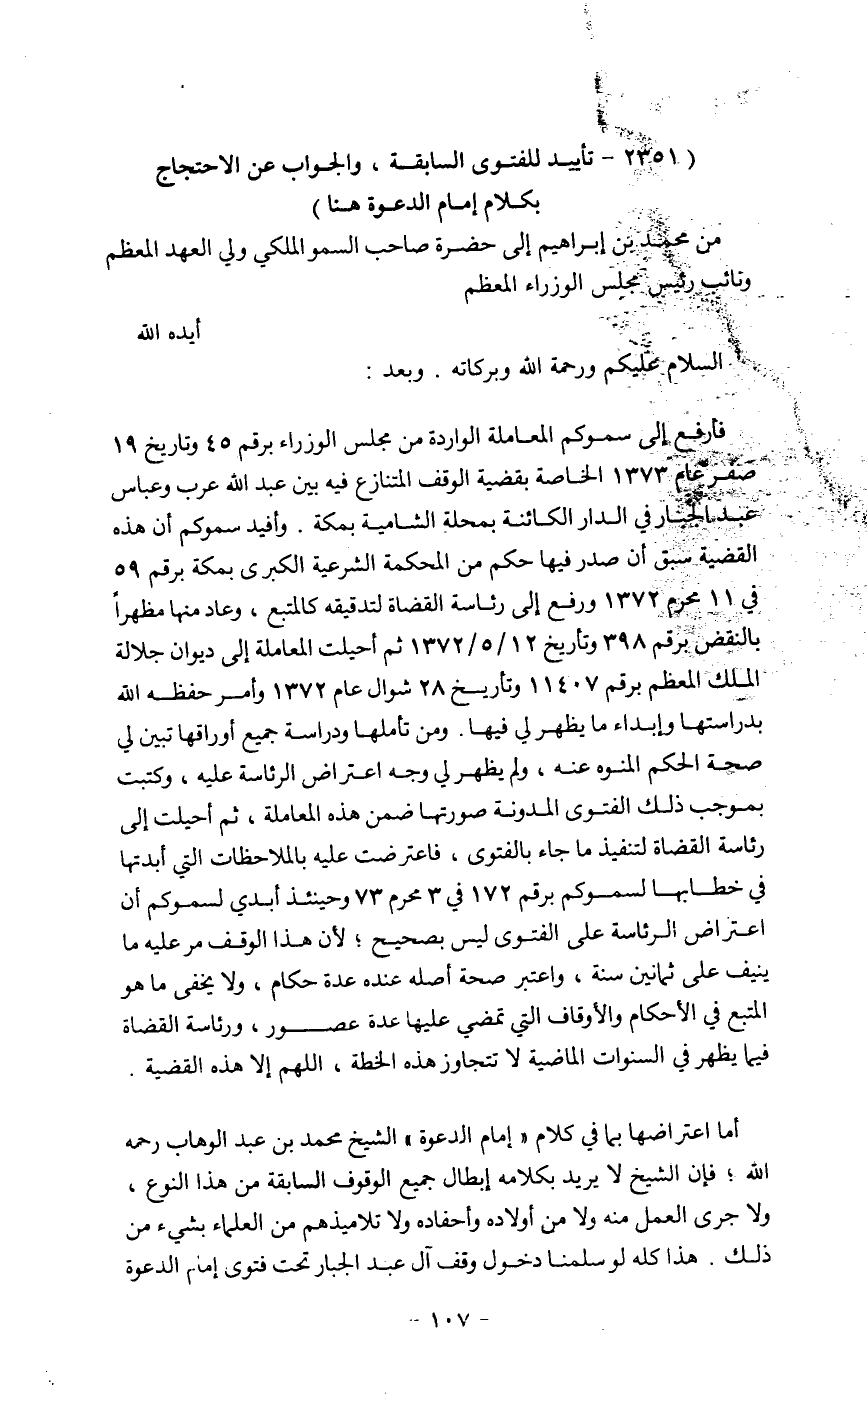 ( ٢٣٥١ - تأييد للفتوى السابقة ، والجواب عن الاحتجاج
بكلام إمام الدعوة هنا )
من محمد بن إبراهيم إلى حضرة صاحب السمو الملكي ولي العهد المعظم
ونائب رئيس مجلس الوزراء المعظم
أيده الله
السلام عليكم ورحمة الله وبركاته . وبعد :
فأرفع إلى سموكم المعاملة الواردة من مجلس الوزراء برقم ٤٥ وتاريخ ١٩
صفر عام ١٣٧٣ الخاصة بقضية الوقف المتنازع فيه بين عبد الله عرب وعباس
عبد الجبار في الدار الكائنة بمحلة الشامية بمكة . وأفيد سموكم أن هذه
القضية سبق أن صدر فيها حكم من المحكمة الشرعية الكبرى بمكة برقم ٥٩
في ١١ محرم ١٣٧٢ ورفع إلى رئاسة القضاة لتدقيقه كالمتبع ، وعاد منها مظهراً
بالنقض برقم ٣٩٨ وتأريخ ١٣٧٢/٥/١٢ ثم أحيلت المعاملة إلى ديوان جلالة
الملك المعظم برقم ١١٤٠٧ وتأريخ ٢٨ شوال عام ١٣٧٢ وأمر حفظه الله
بدراستها وإبداء ما يظهر لي فيها . ومن تأملها ودراسة جميع أوراقها تبين لي
صحة الحكم المنوه عنه ، ولم يظهر لي وجه اعتراض الرئاسة عليه ، وكتبت
بموجب ذلك الفتوى المدونة صورتها ضمن هذه المعاملة ، ثم أحيلت إلى
رئاسة القضاة لتنفيذ ما جاء بالفتوى ، فاعترضت عليه بالملاحظات التي أبدتها
في خطابها لسموكم برقم ١٧٢ في ٣ محرم ٧٣ وحينئذ أبدي لسموكم أن
اعتراض الرئاسة على الفتوى ليس بصحيح ؛ لأن هذا الوقف مر عليه ما
ينيف على ثمانين سنة ، واعتبر صحة أصله عنده عدة حكام ، ولا يخفى ما هو
المتبع في الأحكام والأوقاف التي تمضي عليها عدة عصور ، ورئاسة القضاة
فيما يظهر في السنوات الماضية لا تتجاوز هذه الخطة ، اللهم إلا هذه القضية .
أما اعتراضها بما في كلام « إمام الدعوة » الشيخ محمد بن عبد الوهاب رحمه
الله ؛ فإن الشيخ لا يريد بكلامه إبطال جميع الوقوف السابقة من هذا النوع ،
ولا جرى العمل منه ولا من أولاده وأحفاده ولا تلاميذهم من العلماء بشيء من
ذلك . هذا كله لو سلمنا دخول وقف آل عبد الجبار تحت فتوى إمام الدعوة
- ١٠٧ -